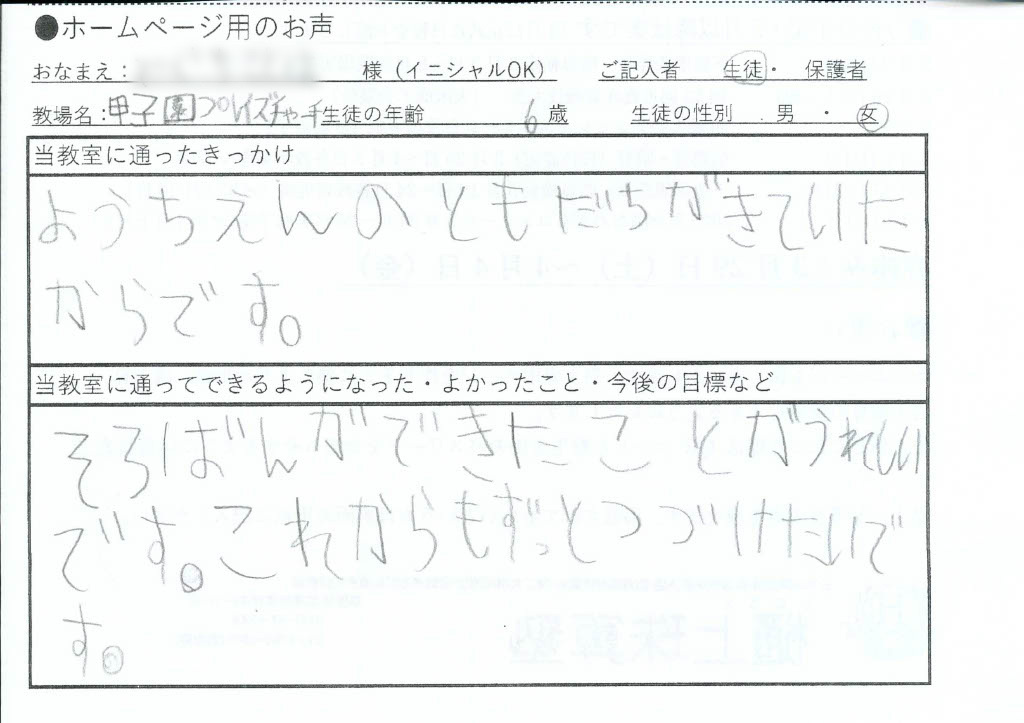 ●ホームページ用のお声
おなまえ： 様（イニシャルOK） ご記入者 生徒・ 保護者
教場名：甲子園プレイズチャーチ 生徒の年齢 6 歳 生徒の性別 男 ・ 女
当教室に通ったきっかけ
ようちえんのともだちがきていた
からです。
当教室に通ってできるようになった・よかったこと・今後の目標など
そろばんができたことがうれしい
です。これからもずっとつづけたいで
す。